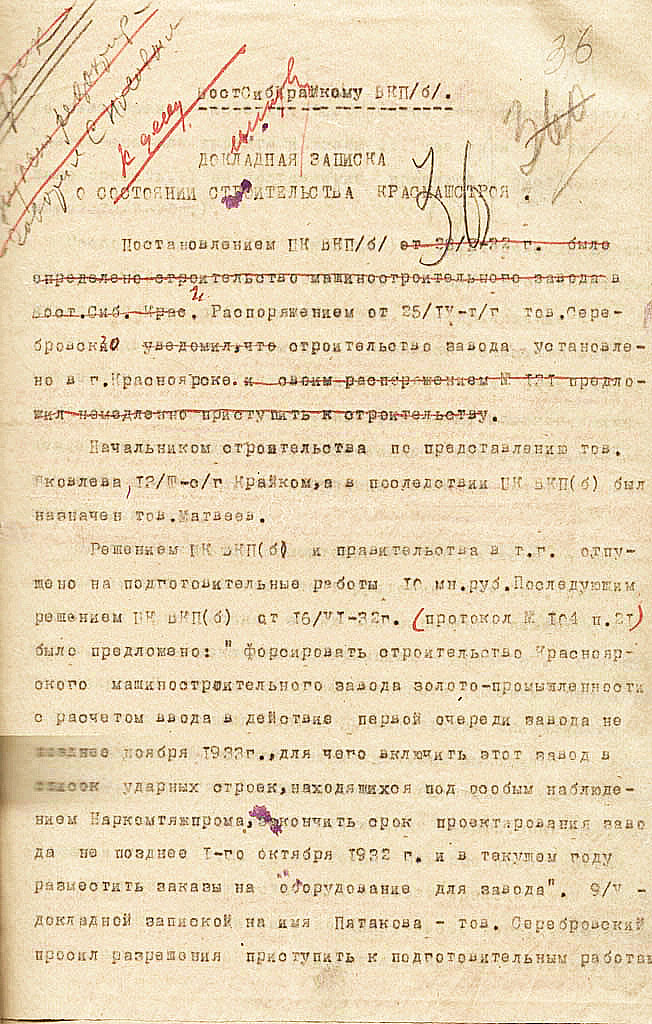 36
360
к делу
ВостСибКрайкому ВКП/б/.
ДОКЛАДНАЯ ЗАПИСКА
О СОСТОЯНИИ СТРОИТЕЛЬСТВА КРАСМАШСТРОЯ .
36
Постановлением ЦК ВКП/б/ от 28/2-32 г. было
определено строительство машиностроительного завода в
Вост.Сиб. Крае. Распоряжением от 25/IV-т/г тов.Сере-
бровский уведомил,что строительство завода установле-
но в г.Красноярске.и своим распоряжением № 121 предло-
жил немедленно приступить к строительству.
Начальником строительства по представлению тов.
Яковлева, 13/Ш-с/г Крайком,а в последствии ЦК ВКП(б) был
назначен тов.Матвеев.
Решением ЦК ВКП(б) и правительства в т.г. отпу-
щено на подготовительные работы 10 мн.руб.Последующим
решением ЦК ВКП(б) от 16/VI-32г. (протокол № 104 п.21)
было предложено: " форсировать строительство Краснояр-
ского машиностроительного завода золото-промышленности
с расчетом ввода в действие первой очереди завода не
позднее ноября 1933г.,для чего включить этот завод в
список ударных строек,находящихся под особым наблюде-
нием Наркомтяжпрома,закончить срок проектирования заво
да не позднее I-го октября 1932 г. и в текущем году
разместить заказы на оборудование для завода". 9/V -
докладной запиской на имя Пятакова - тов. Серебровский
просил разрешения приступить к подготовительным работам